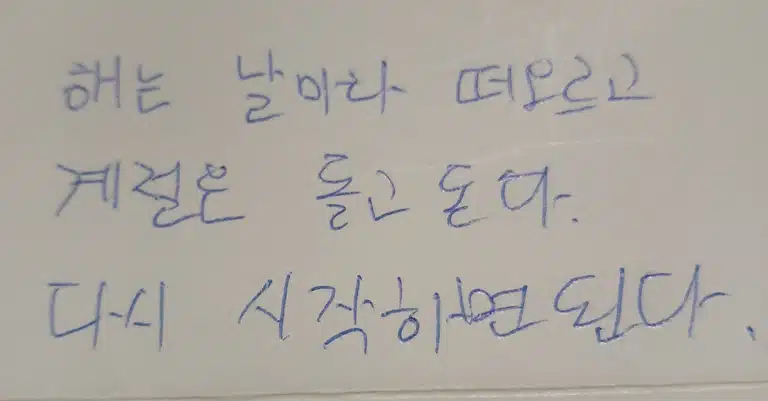 해는 날마다 떠오르고
계절은 돌고 돈다.
다시 시작하면 된다.